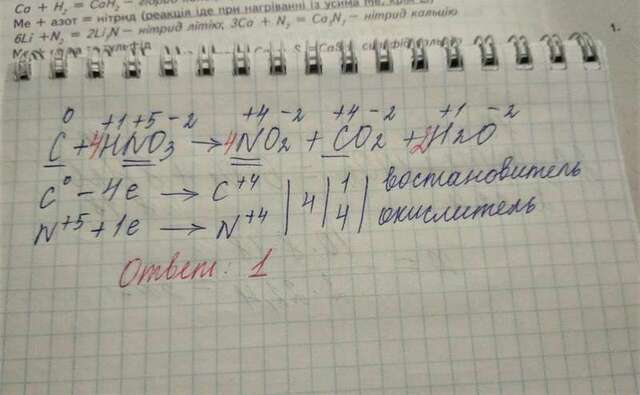 Ca + H₂ = CaH₂ –
Ме + азот = нітрид (реакція іде при нагріванні із усіма Ме,
6Li + N₂ = 2Li₃N – нітрид літію, 3Ca + N₂ = Ca₃N₂ – нітрид кальцію
1.
0 +1 +5 -2 +4 -2 +4 -2 +1 -2
C + 4HNO₃ → 4NO₂ + CO₂ + 2H₂O
C⁰ - 4e → C⁺⁴ | 4 | 1 | востановитель
N⁺⁵ + 1e → N⁺⁴ | | 4 | окислитель
Ответ: 1